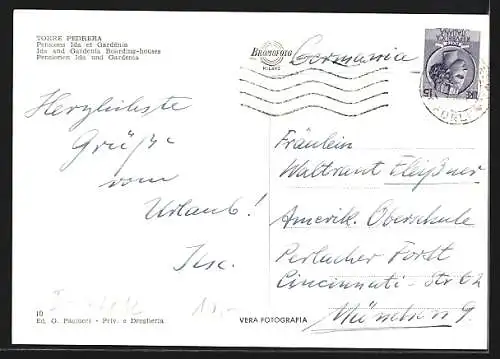 TORRE PEDRERA
Pensions Ida et Gardénia
Ida and Gardenia Boarding-houses
Pensionen Ida und Gardenia
BROMOFOTO
MILANO
Germania
Herzlichste
Grüße
vom
Urlaub!
Ilse.
Fräulein
Waltraut Fleißner
Amerik. Oberschule
Perlacher Forst
Cincinnati-Str 62
München 9.
10,-
10
Ed. G. Paolucci - Priv. e Drogheria
VERA FOTOGRAFIA
REPUBBLICA
ITALIANA
LIRE 15